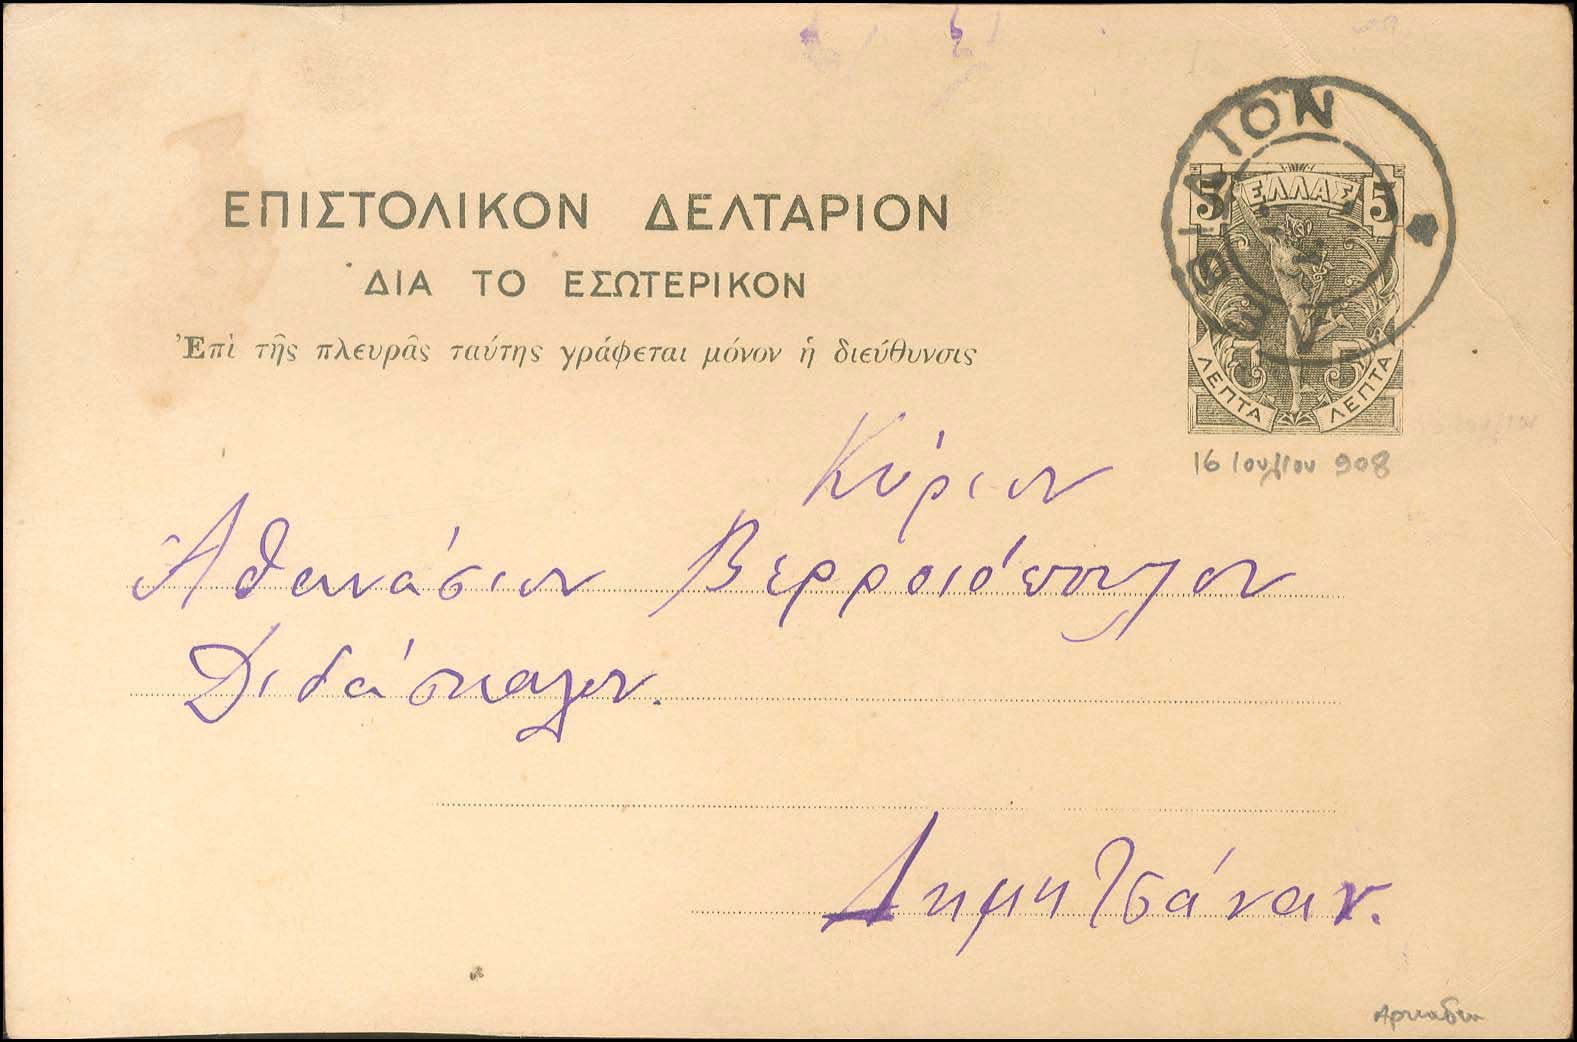 ΕΛΛΑΣ
5 5
ΕΠΙΣΤΟΛΙΚΟΝ ΔΕΛΤΑΡΙΟΝ
ΔΙΑ ΤΟ ΕΣΩΤΕΡΙΚΟΝ
Ἐπὶ τῆς πλευρᾶς ταύτης γράφεται μόνον ἡ διεύθυνσις
5 5
ΛΕΠΤΑ ΛΕΠΤΑ
16 Ιουλίου 908
Κύριον
Αθανάσιον
Διδάσκαλον.
Δημητσάναν.
Αρκαδία